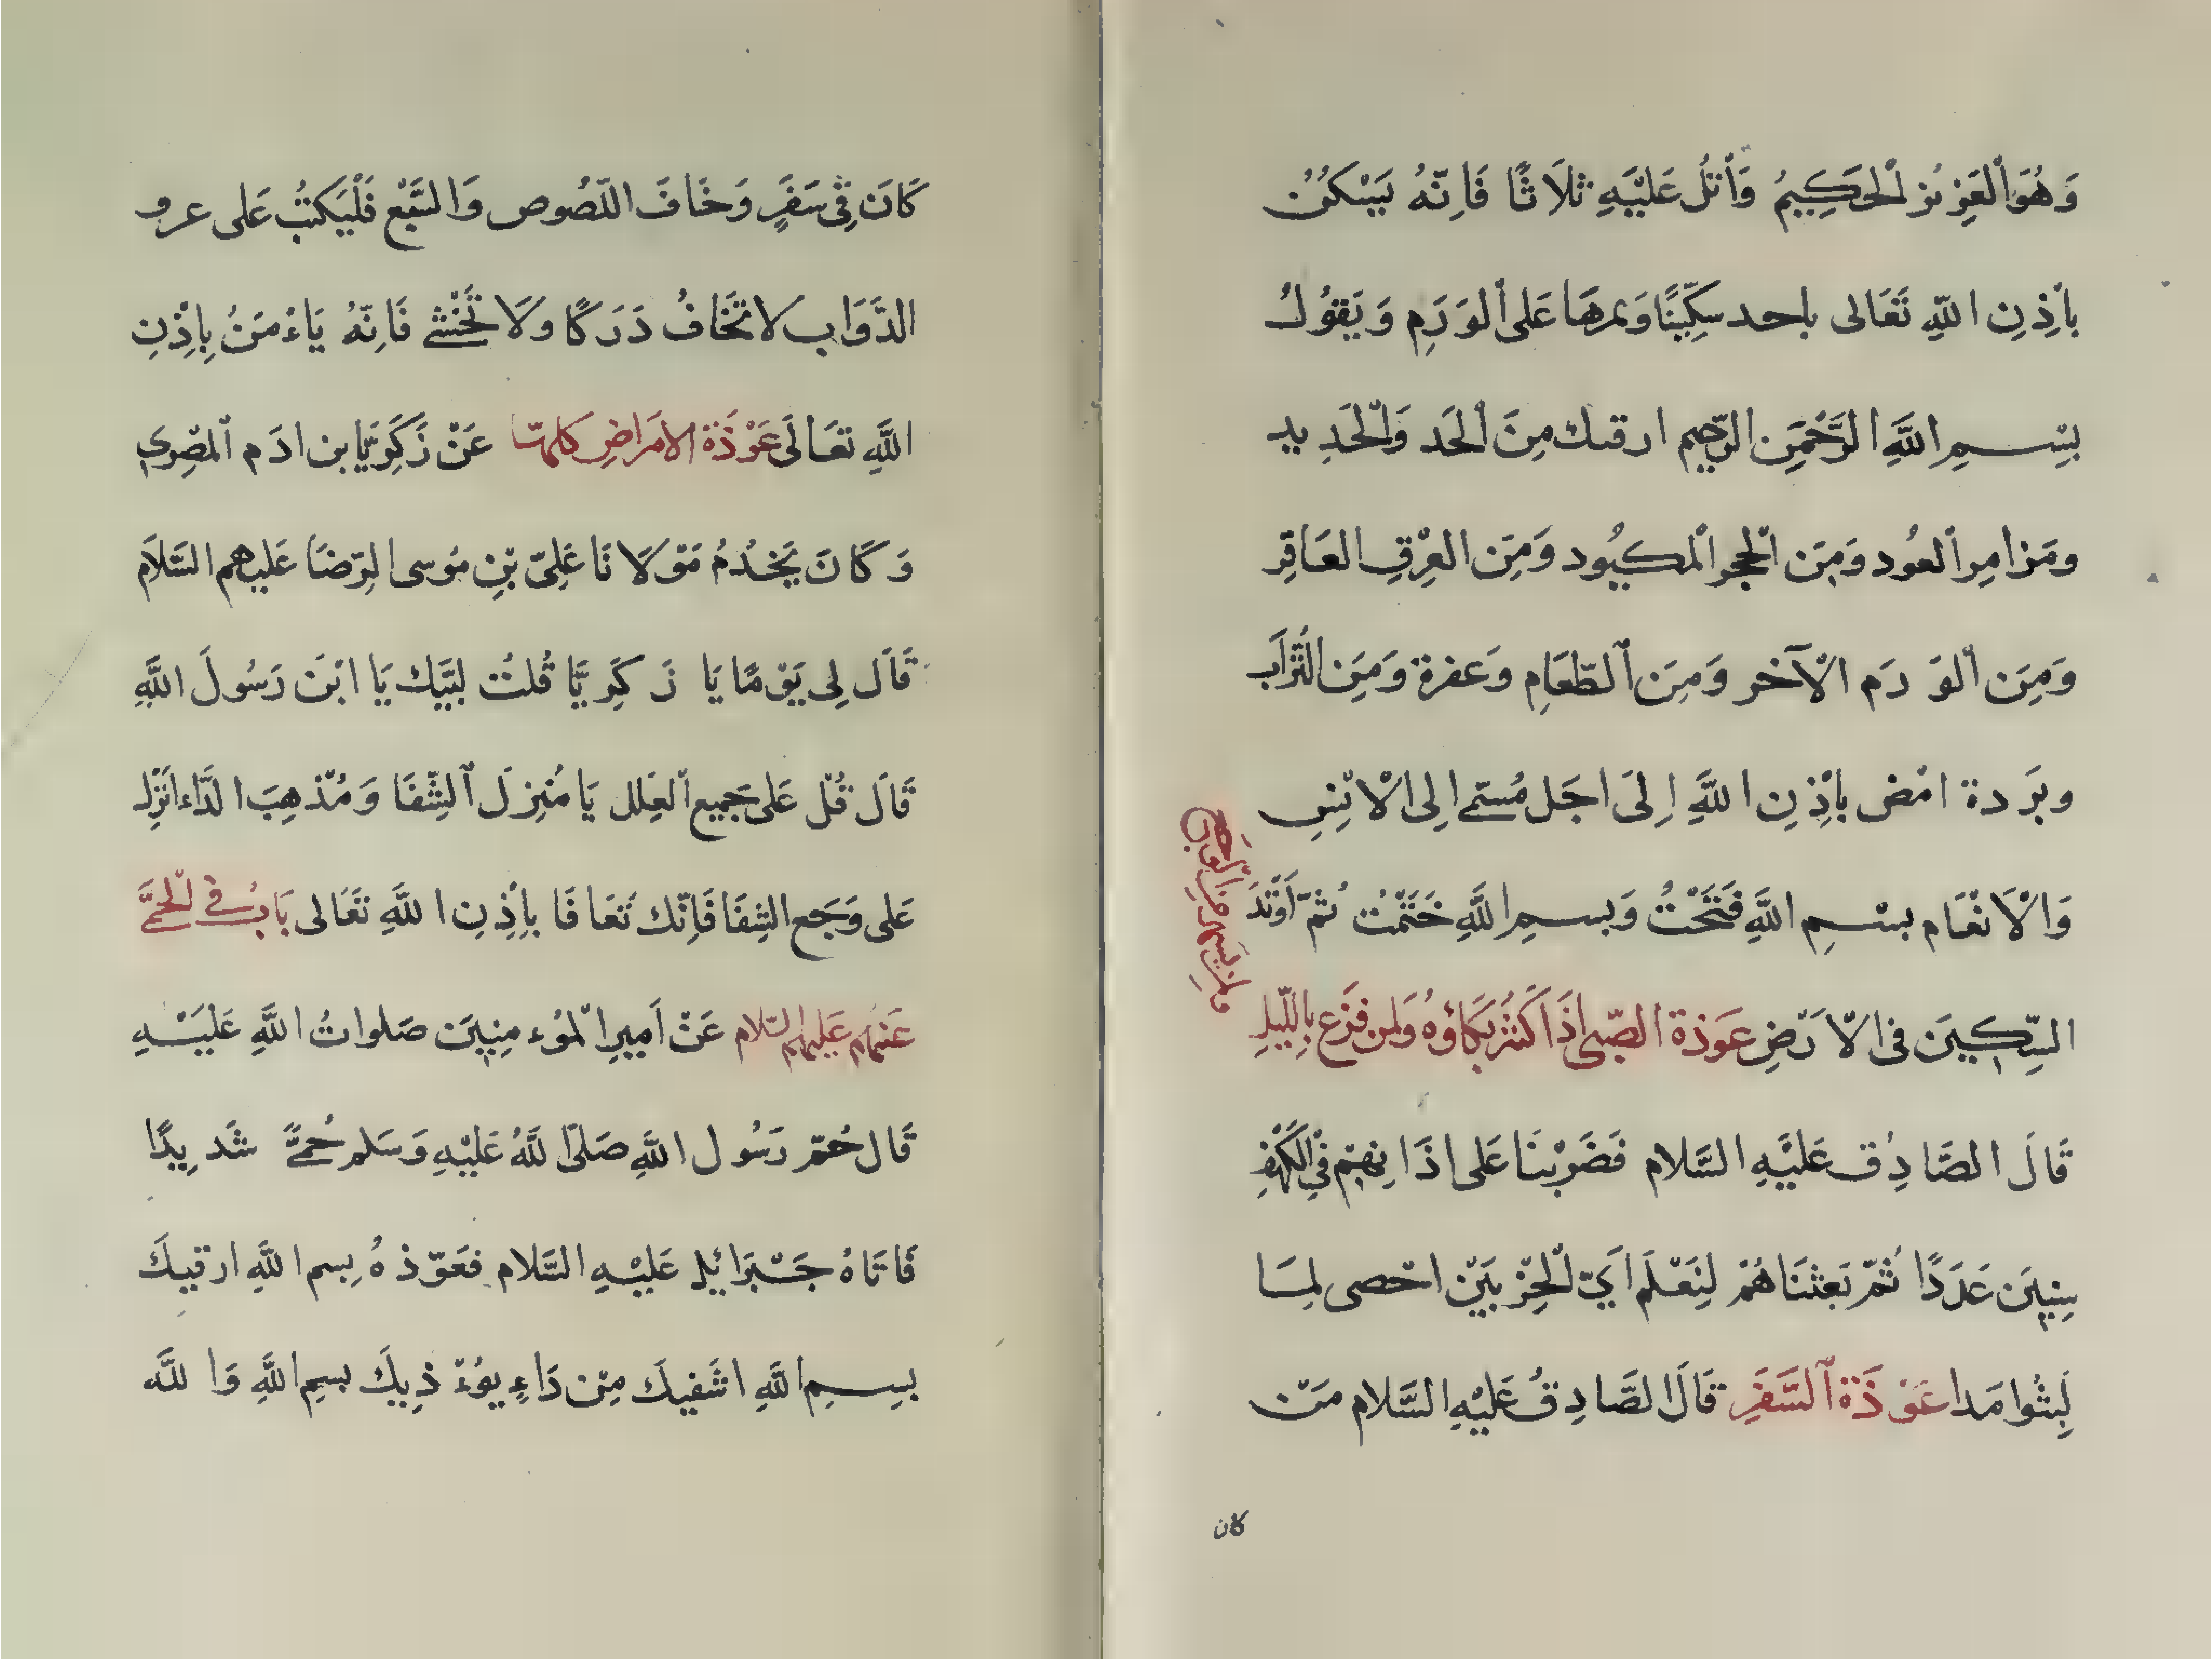 وَهُوَ ٱلْعَزِيْزُ ٱلْحَكِيمُ وَٱتْلُ عَلَيْهِ ثَلَاثًا فَاِنَّهُ يَسْكُنُ
بِاْذِنِ اللهِ تَعَالى ياحد سِكِّينًا وَيمرهَا عَلى ٱلوَرَمِ وَيَقُولُ
بِسْـمِ اللَّهِ الرَّحْمٰنِ الرَّحِيم ارقيك مِنَ ٱلْحَد وَٱلْحَدِيد
ومَن امِر ٱلعُود وَمِنَ ٱلحجر ٱلْمَلبُود وَمِنَ العِرْقِ العَاقِر
وَمِنَ ٱلْوَرَم الْآخر وَمِنَ ٱلطَّعَامِ وَعفرة وَمِنَ الشَّرَاب
وبَردة امْض بِاْذِنِ اللَّهِ اِلَى اجَل مُسَمّى اِلى الْاِنْسِ
وَالْاَنْعَام بِسْـمِ اللَّهِ فَتَحْتُ وَبِسـمِ اللَّهِ خَتَمْتُ ثُمَّ اَوْتِدَ
السِّكِينَ فى الْاَرْضِ عَوذة الصَّبى اذَا كَثُرَ بُكَاؤهُ وَلمن فَزع بِالْليلِ
ولمن يسهر من الوجع
قَالَ الصَّادِق عَلَيْهِ السَّلام فَضَرَبْنَا عَلى اذَانِهِمْ فِى الْكَهْفِ
سِنِينَ عَدَدًا ثُمّ بَعَثْنَاهُمْ لِنَعْلَم اَىّ الْحِزْبَيْنِ احْصى لِمَا
لَبِثُوا مَدا عَوْذَة ٱلسَّفَرِ قَالَ الصَّادِقُ عَلَيْهِ السَّلام مَنْ
كان
كَانَ فِى سَفَرٍ وَخَافَ اللّصُوص وَالسَّبْع فَلْيَكتبُ عَلى عرف
الدَّوَاب لا تخَافُ دَرَكًا ولَا تَخْشى فَاِنَّهُ يَاءْمَنُ بِاِذْنِ
اللَّهِ تعَالَى عَوْذَة الامَراضِ كلهَا عَنْ زَكَرِيَّا بن ادَم ٱلمصْرِى
وَكَانَ يَخْدُمُ مَوْلَانَا عَلِىّ بْنِ مُوسى الرِّضَا عَليهم السَّلَام
قَالَ لِى يَوْمًا يَا زَكَرِيَّا قُلتُ لبَّيك يَا ابْنَ رَسُولَ اللَّهِ
قَالَ قُل عَلى جَميع ٱلعِلل يَا مُنْزِلَ ٱلشِّفَا وَمُذْهِبَ الدَّاء انْزِل
عَلى وَجَع الشِفَا فَاِنَّك تَعَافَا بِاِذْنِ اللَّهِ تَعَالى بَابٌ فى الْحمّى
عَنْهُم عَليهم السّلام عَنْ اَمِيرِ الْمُوءمِنِينَ صَلواتُ اللَّهِ عَلَيْـهِ
قَال حُمّ رَسُول اللَّهِ صَلى اللَّهُ عَلَيْهِ وَسَلم حُمًّى شَدِيدًا
فَاتَاهُ جَـبْرَائيل عَلَيْـهِ السَّلام فعَوّذهُ بِسم اللَّهِ ارقيكَ
بِسـمِ اللَّهِ اشْفيكَ مِنْ دَاءٍ يوُءْذِيكَ بسمِ اللَّهِ وَاللَّه